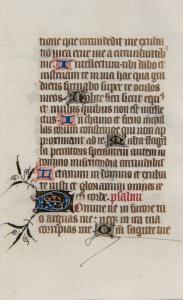 tione que circundedit me exulta
tio mea erue me a
Intellectum tibi dabo et
instruam te in uia hac qua gra
dieris firmabo super te oculos
meos Nolite fieri sicut equ
et mulus quibus non est intelle
ctus In chamo et freno maxil
las eorum constringe qui non ap
proximant ad te Multa flagel
la peccatoris sperantem autem in
domino misericordia circundabit
Letamini in domino et exulta
te iusti et gloriamini omnes re
cti corde. psalmus
Domine ne in furore tu
o arguas me neqz in ira tua
corripias me Qm sagitte tue